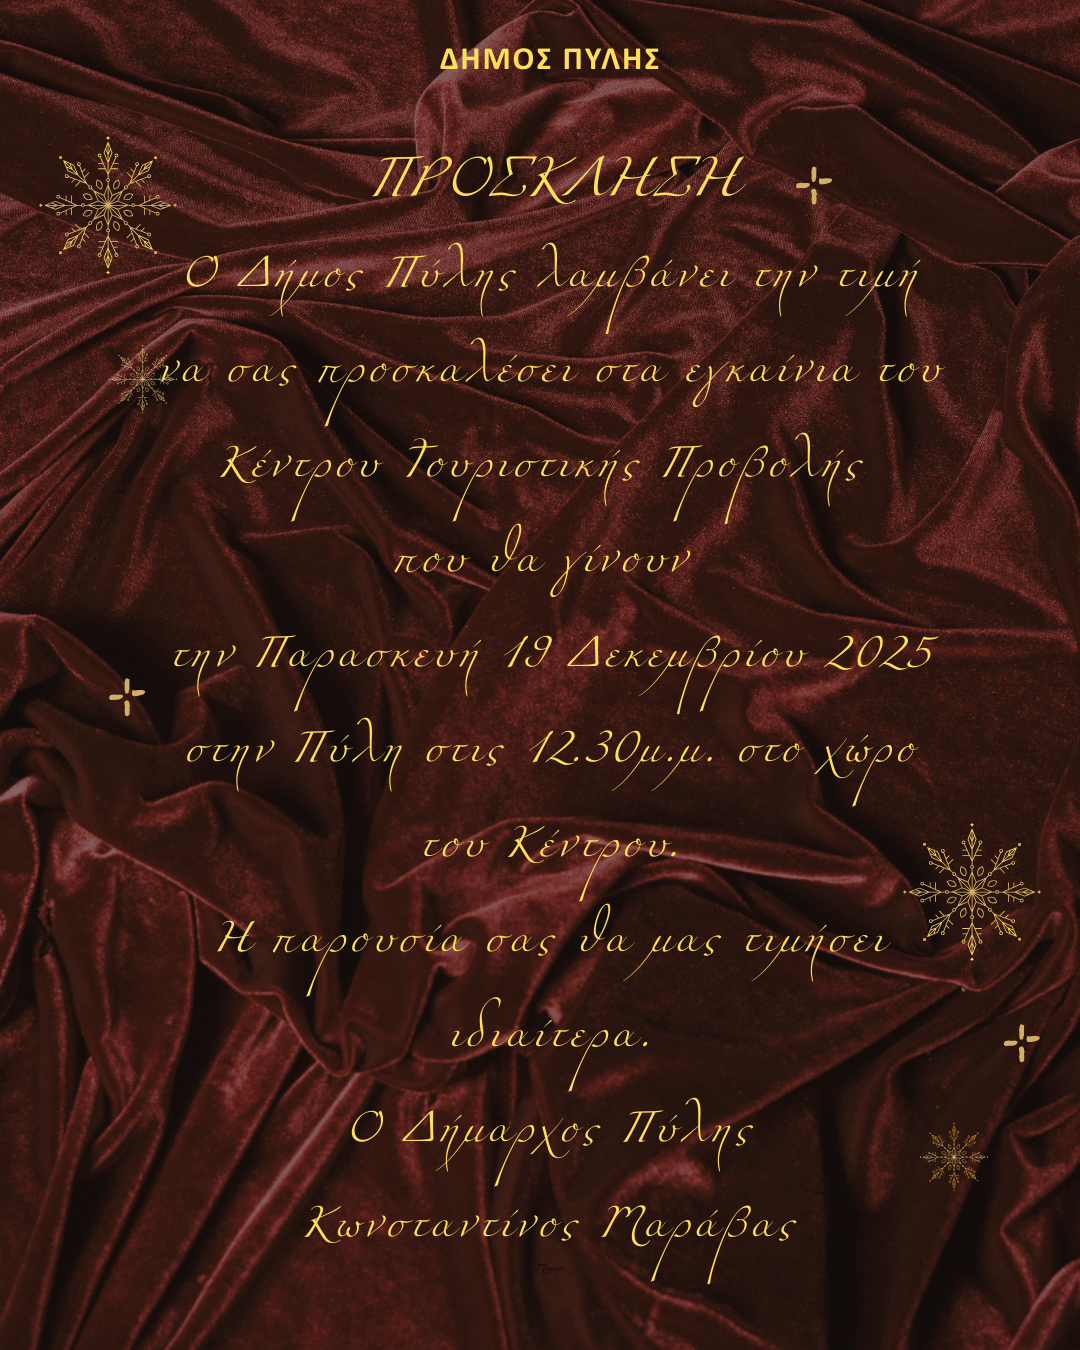 ΔΗΜΟΣ ΠΥΛΗΣ
ΠΡΟΣΚΛΗΣΗ
Ο Δήμος Πύλης λαμβάνει την τιμή
να σας προσκαλέσει στα εγκαίνια του
Κέντρου Τουριστικής Προβολής
που θα γίνουν
την Παρασκευή 19 Δεκεμβρίου 2025
στην Πύλη στις 12.30μ.μ. στο χώρο
του Κέντρου.
Η παρουσία σας θα μας τιμήσει
ιδιαίτερα.
Ο Δήμαρχος Πύλης
Κωνσταντίνος Μαράβας